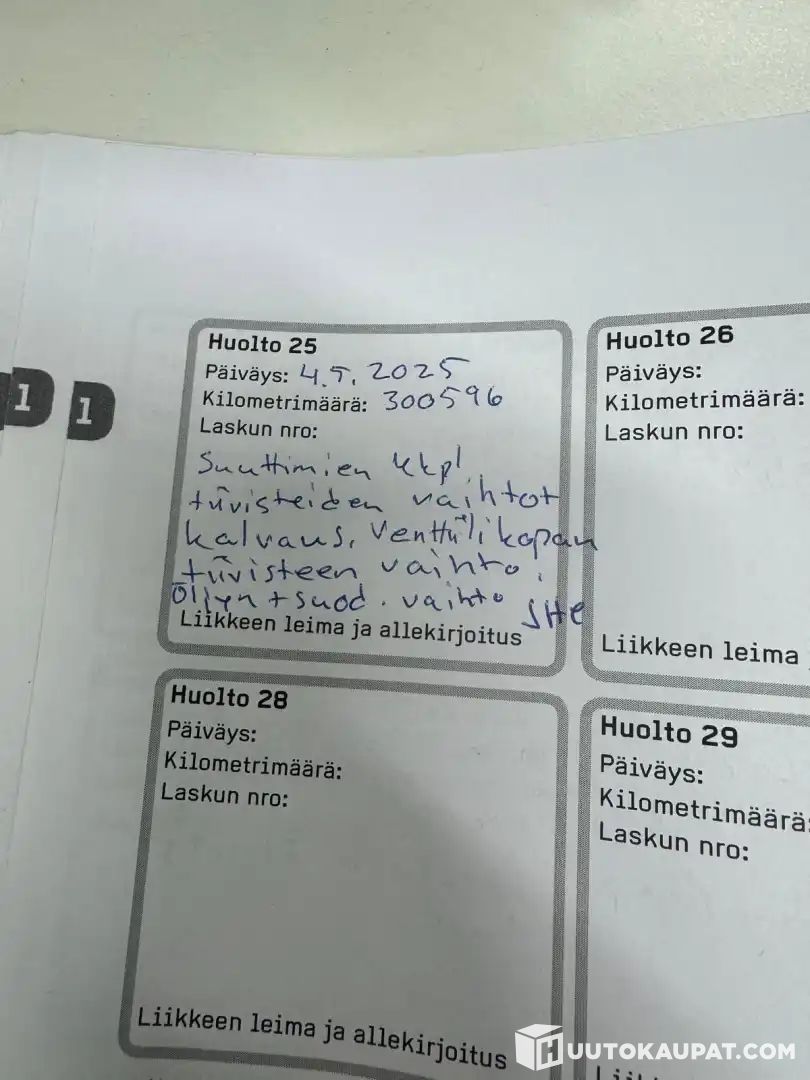 1
1
Huolto 25
Päiväys: 4.5.2025
Kilometrimäärä: 300596
Laskun nro:
Suuttimien
tiivisteiden vaihtot
kalvaus, Venttiilikopan
tiivisteen vaihto.
Öljyn + suod. vaihto
Liikkeen leima ja allekirjoitus
Huolto 26
Päiväys:
Kilometrimäärä:
Laskun nro:
Liikkeen leima
Huolto 28
Päiväys:
Kilometrimäärä:
Laskun nro:
Liikkeen leima ja allekirjoitus
Huolto 29
Päiväys:
Kilometrimäärä:
Laskun nro:
HUUTOKAUPAT.COM